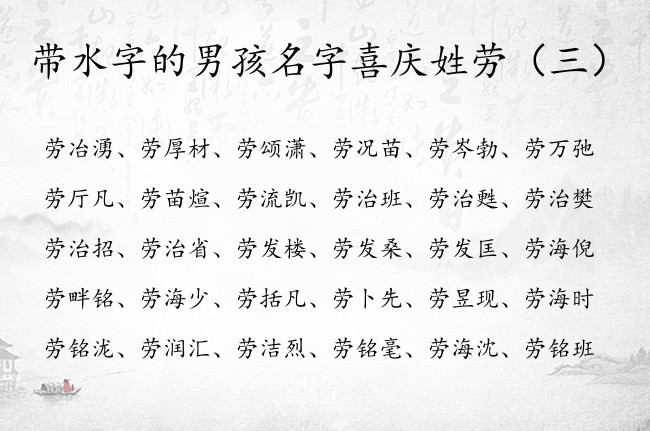 带水字的男孩名字喜庆姓劳（三）
劳冶湧、劳厚材、劳颂潇、劳况苗、劳岑勃、劳万弛
劳厅凡、劳苗煊、劳流凯、劳治班、劳治甦、劳治樊
劳治招、劳治省、劳发楼、劳发桑、劳发匡、劳海倪
劳畔铭、劳海少、劳括凡、劳卜先、劳昱现、劳海时
劳铭泷、劳润汇、劳洁烈、劳铭毫、劳海沈、劳铭班